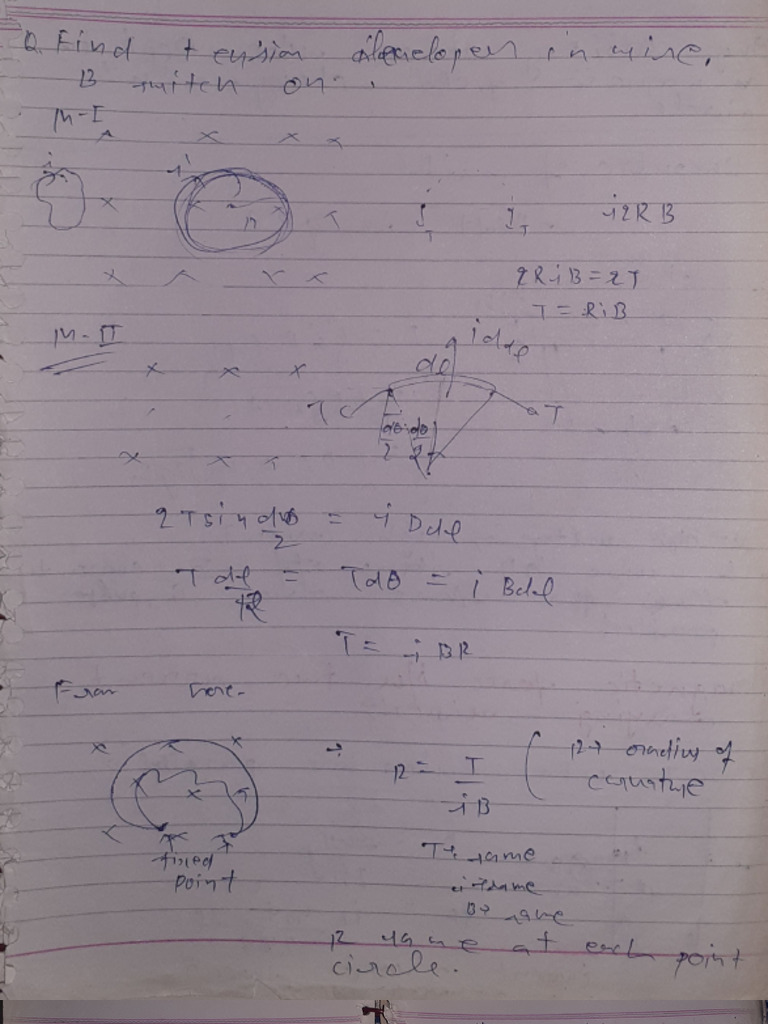 Q. Find tension developed in wire.
B switch on.
M-I
x x x
i i x r T T i2RB
2RiB = 2T
T = RiB
M-II
i dl
dl
T T
dθ/2 dθ/2
2T sin dθ/2 = i B dl
T dl/R = Tdθ = i Bdl
T = i BR
From here-
→ R = T/iB ( R → radius of
curvature
fixed
point
T → same
i → same
B → same
R same at each point
circle.